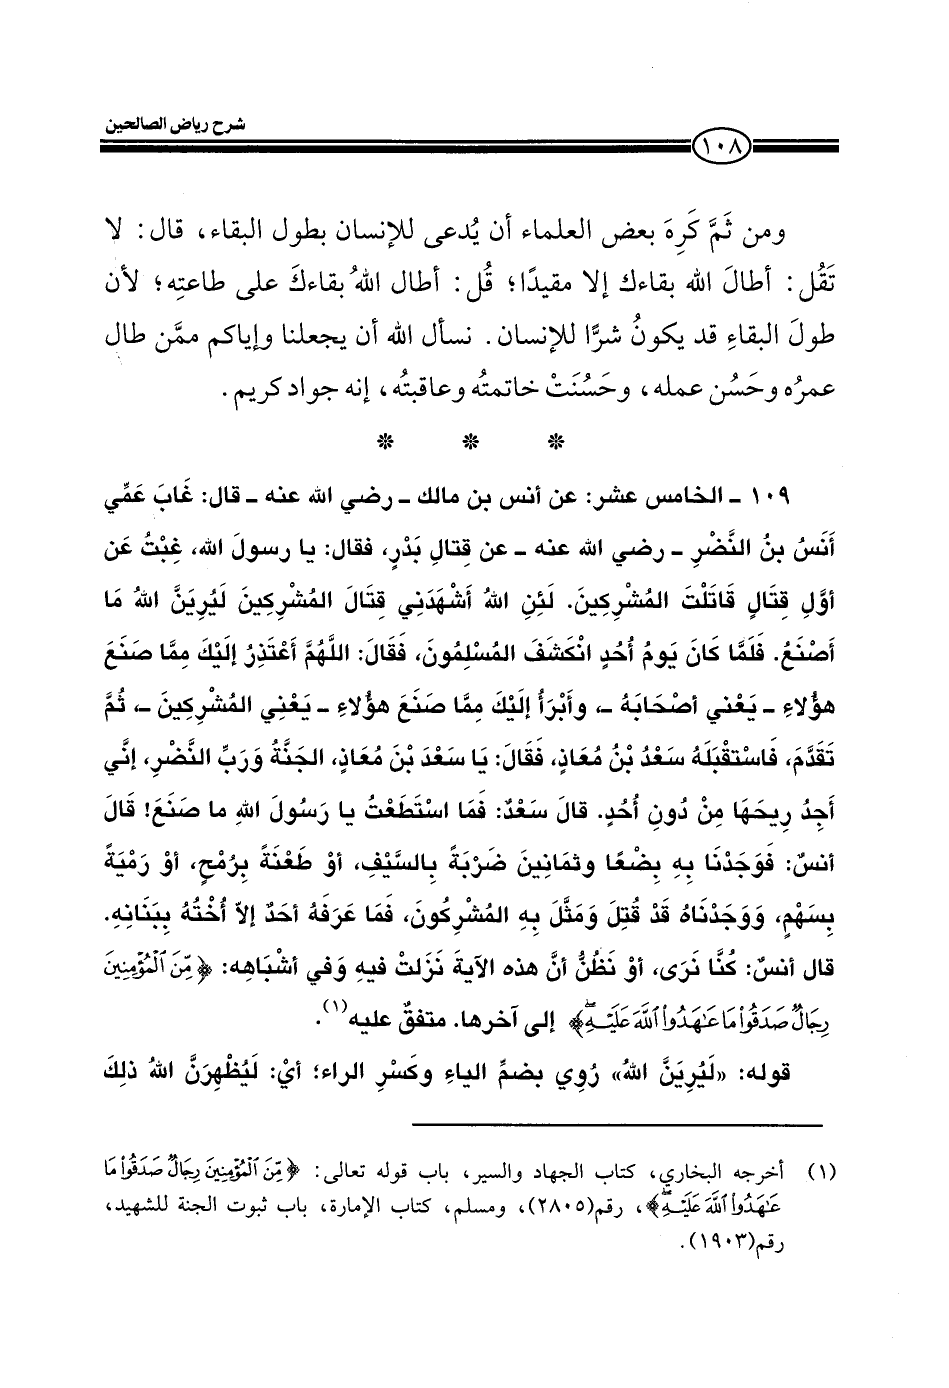 شرح رياض الصالحين
١٠٨
ومن ثَمَّ كَرِهَ بعض العلماء أن يُدعى للإنسان بطول البقاء، قال: لا
تَقُل: أطالَ الله بقاءك إلا مقيدًا؛ قُل: أطال اللهُ بقاءكَ على طاعتِه؛ لأن
طولَ البقاءِ قد يكونُ شرًّا للإنسان. نسأل الله أن يجعلنا وإياكم ممَّن طال
عمرُه وحَسُن عمله، وحَسُنَتْ خاتمتُه وعاقبتُه، إنه جواد كريم.
* * *
١٠٩ ـ الخامس عشر: عن أنس بن مالك ـ رضي الله عنه ـ قال: غَابَ عَمِّي
أَنَسُ بنُ النَّضْرِ ـ رضي الله عنه ـ عن قِتالِ بَدْرٍ، فقال: يا رسولَ الله، غِبْتُ عَن
أوَّلِ قِتَالٍ قَاتَلْتَ المُشْرِكِينَ. لَئِنِ اللهُ أشْهَدَنِي قِتَالَ المُشْرِكِينَ لَيُرِيَنَّ اللهُ مَا
أصْنَعُ. فَلَمَّا كَانَ يَومُ أُحُدٍ انْكَشَفَ المُسْلِمُونَ، فَقَالَ: اللَّهُمَّ أعْتَذِرُ إلَيْكَ مِمَّا صَنَعَ
هؤُلاءِ ـ يَعْني أصْحَابَهُ ـ، وأبْرَأُ إلَيْكَ مِمَّا صَنَعَ هؤُلاءِ ـ يَعْنِي المُشْرِكِينَ ـ، ثُمَّ
تَقَدَّمَ، فَاسْتَقْبَلَهُ سَعْدُ بْنُ مُعَاذٍ، فَقَالَ: يَا سَعْدَ بْنَ مُعَاذٍ، الجَنَّةُ وَرَبِّ النَّضْرِ، إنَّي
أجِدُ رِيحَهَا مِنْ دُونِ أُحُدٍ. قالَ سَعْدٌ: فَمَا اسْتَطَعْتُ يا رَسُولَ اللهِ ما صَنَعَ! قَالَ
أنسٌ: فَوَجَدْنَا بِهِ بِضْعًا وثمَانِينَ ضَرْبَةً بِالسَّيْفِ، أوْ طَعْنَةً بِرُمْحٍ، أوْ رَمْيَةً
بِسَهْمٍ، وَوَجَدْنَاهُ قَدْ قُتِلَ وَمَثَّلَ بِهِ المُشْرِكُونَ، فَمَا عَرَفَهُ أحَدٌ إلاّ أُخْتُهُ بِبَنَانِهِ.
قال أنسٌ: كُنَّا نَرَى، أوْ نَظُنُّ أنَّ هذه الآيةَ نَزَلتْ فيهِ وَفي أشْبَاهِه: ﴿مِّنَ ٱلْمُؤْمِنِينَ
رِجَالٌ صَدَقُواْ مَا عَٰهَدُواْ ٱللَّهَ عَلَيْهِۖ﴾ إلى آخرها. متفقٌ عليه(١).
قوله: «لَيُرِيَنَّ اللهُ» رُوِي بضمِّ الياءِ وكَسْرِ الراء؛ أيْ: لَيُظْهِرَنَّ اللهُ ذلِكَ
(١) أخرجه البخاري، كتاب الجهاد والسير، باب قوله تعالى: ﴿مِّنَ ٱلْمُؤْمِنِينَ رِجَالٌ صَدَقُواْ مَا
عَٰهَدُواْ ٱللَّهَ عَلَيْهِۖ﴾، رقم(٢٨٠٥)، ومسلم، كتاب الإمارة، باب ثبوت الجنة للشهيد،
رقم(١٩٠٣).